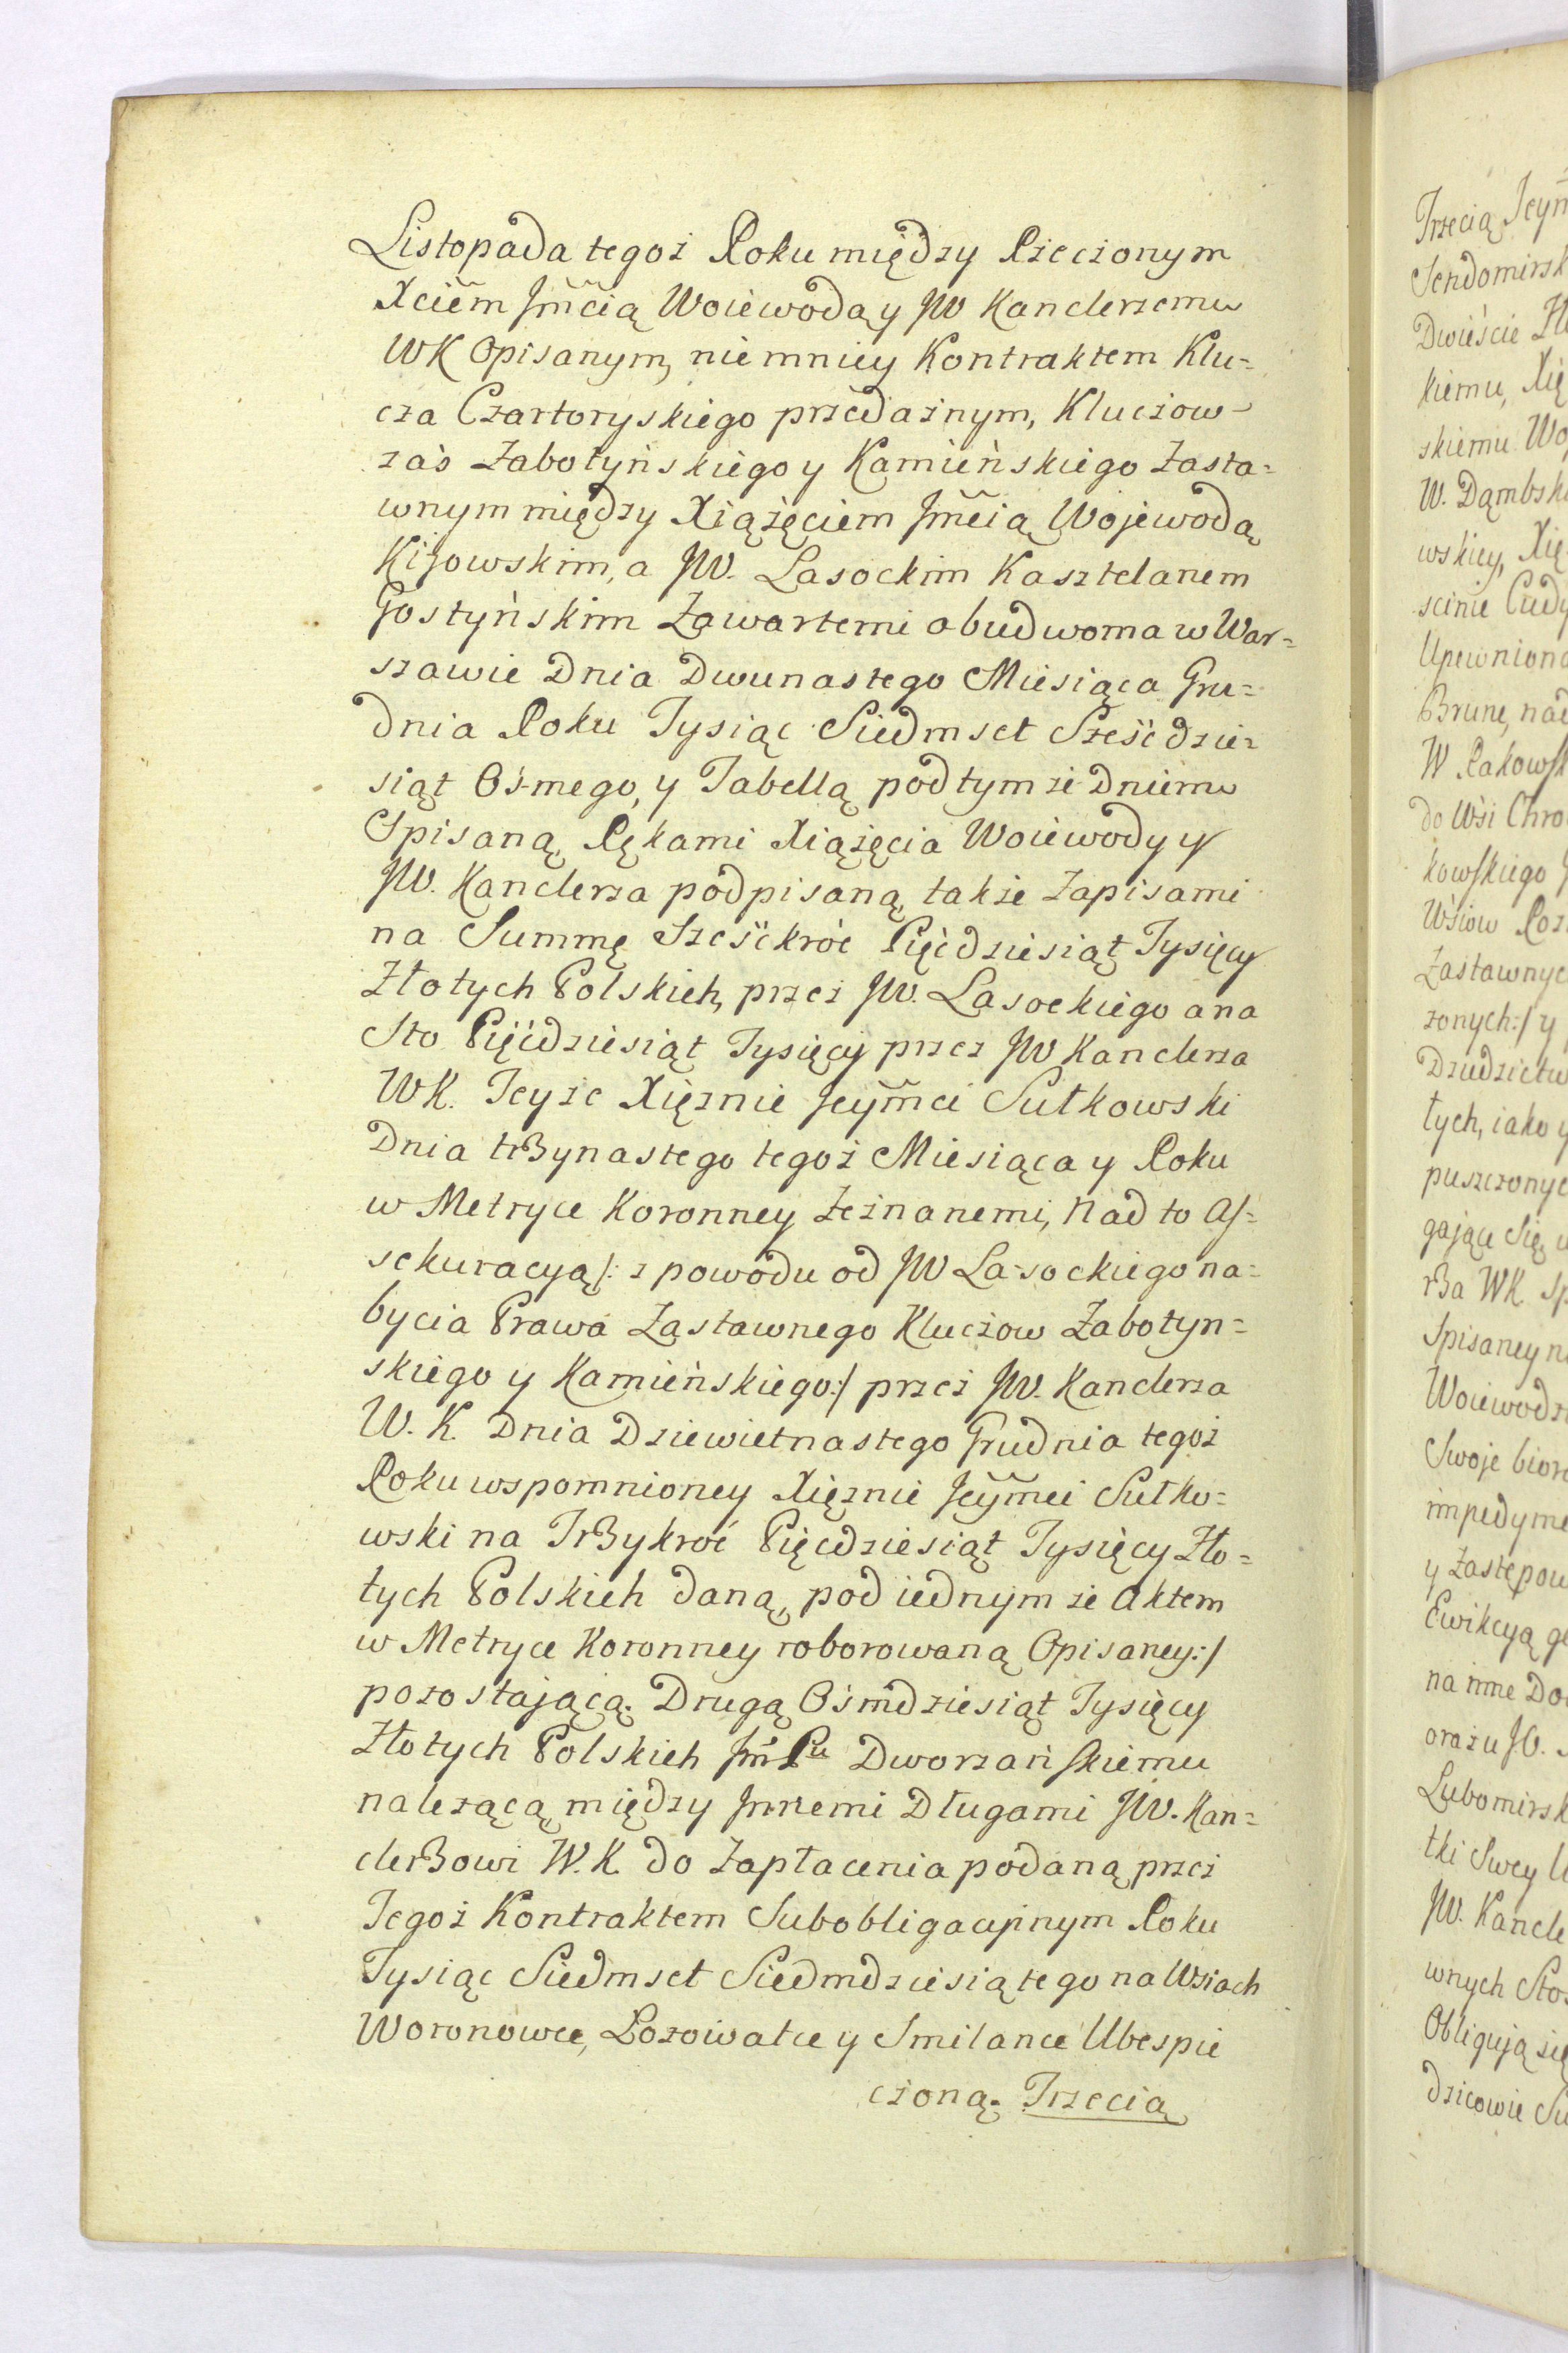 Listopada tegoż Roku między Rzeczonym
Xciem̃ Jm̃cią Woiewodą y JW Kanclerzemu
WK Opisanym, niemniey Kontraktem Klu=
cza Czartoryskiego przedażnym, Kluczow
zaś Żabotyńskiego y Kamieńskiego Zasta=
wnym między Xiążęciem Jm̃cią Wojewodą
Kijowskim, a JW. Lasockim Kasztelanem
Gostyńskim Zawartemi obudwoma w War=
szawie Dnia Dwunastego Miesiąca Gru=
dnia Roku Tysiąc Siedmset Sześćdzie=
siąt Osmego, y Tabellą pod tymże Dniem
Spisaną, Rękami Xiążęcia Woiewody y
JW. Kanclerza podpisaną, także Zapisami
na Summę Sześćkróć Pięćdziesiąt Tysięcy
Złotych Polskich, przez JW. Lasockiego a na
Sto Pięćdziesiąt Tysięcy przez JW Kanclerza
WK. Teyże Xiężnie Jeym̃ci Sułkowski
Dnia trzynastego tegoż Miesiąca y Roku
w Metryce Koronney Zeznanemi, Nad to As=
sekuracyą /: z powodu od JW Lasockiego na=
bycia Prawa Zastawnego Kluczow Żabotyn=
skiego y Kamieńskiego:/ przez JW. Kanclerza
W. K. Dnia Dziewietnastego Grudnia tegoż
Roku wspomnioney Xiężnie Jeym̃ci Sułko=
wski na Trzykroć Pięcdziesiąt Tysięcy Zło=
tych Polskich daną, pod iednymże Aktem
w Metryce Koronney roborowaną Opisaney:/
pozostającą. Drugą Ośmdziesiąt Tysięcy
Złotych Polskich Jm̃ Pu Dworzańskiemu
należącą między Innemi Długami JW. Kan=
clerzowi W. K. do Zapłacenia podaną przez
Tegoż Kontraktem Subobligacyjnym Roku
Tysiąc Siedmset Siedmdziesiątego na Wsiach
Woronowce, Łozowatce y Smilance Ubespie
czoną. Trzecią
Trzecią Jeym
Sendomirsk
Dwieście Zło
kiemu, Xię
skiemu Wo
W. Dąmbsk
wskiey, Xię
scinie Cudy
Upewniono
Brune, nad
W Rakowsk
do Wsi Chro
kowskiego
Wsiow Roz
Zastawnyc
zonych:/ y
Dziedzictw
tych, iako y
puszczonyc
gające Się
rza WK. Sp
Spisaney n
Woiewodz
Swoje bior
impedyme
y Zastępow
Ewikcyą g
na inne Do
oraz u JO.
Lubomirsk
tki Swey U
JW. Kancle
wnych Sto
Obligują się
dzicowie Su